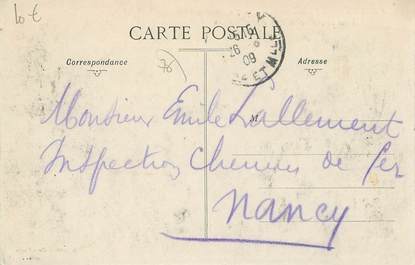 10 €
CARTE POSTALE
Correspondance
Adresse
78
26
09
ET M
M
Monsieur Emile Lallement
Inspection Chemins de Fer
Nancy